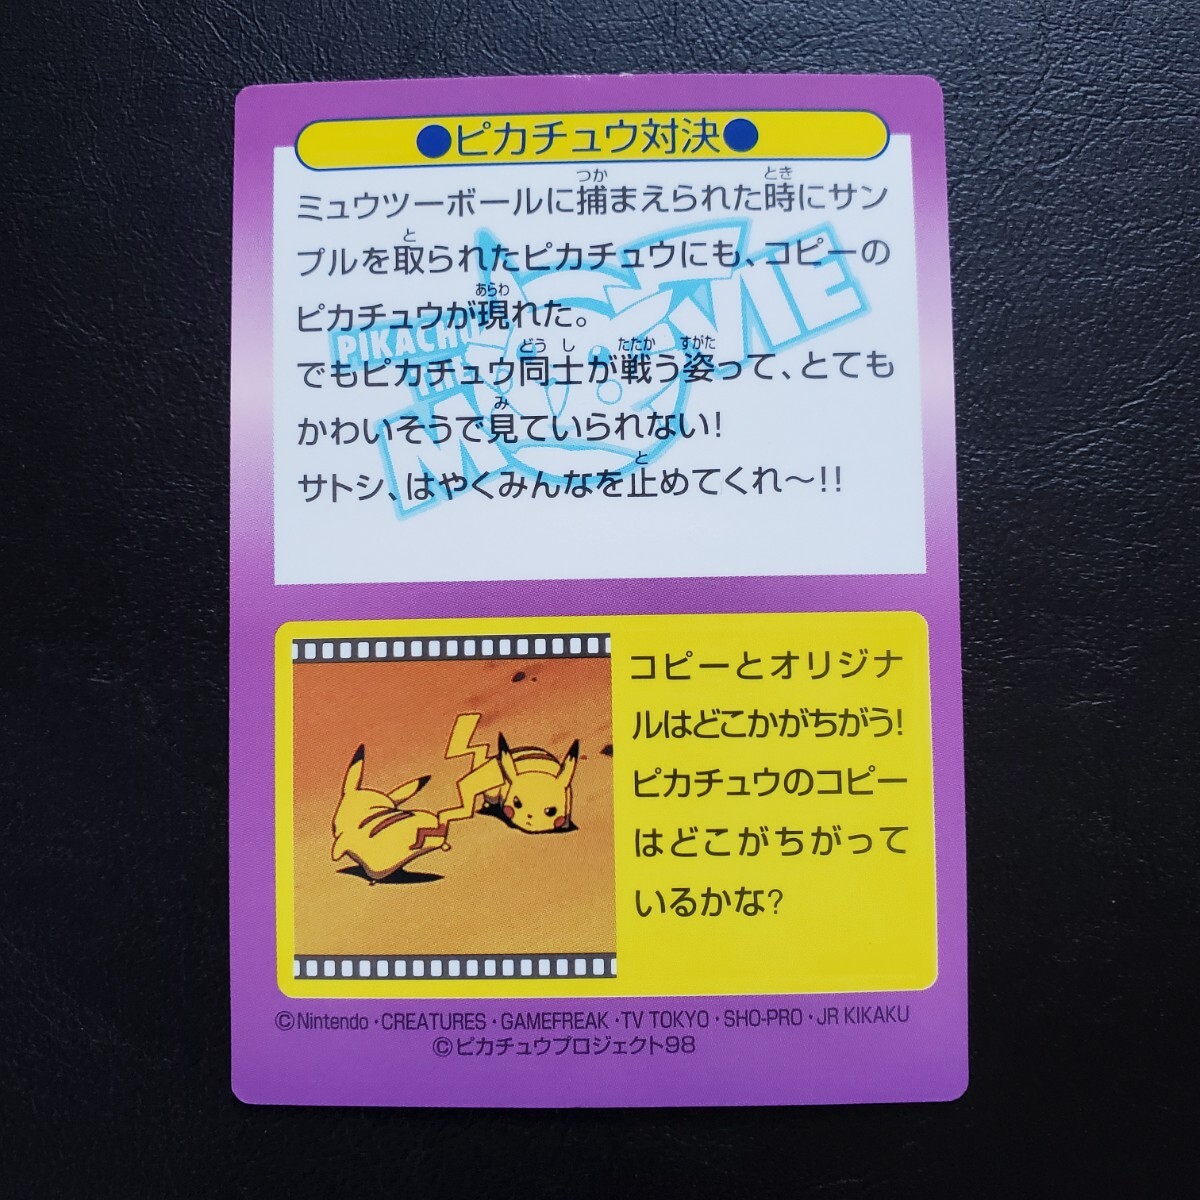 ●ピカチュウ対決●
ミュウツーボールに捕まえられた時にサン
プルを取られたピカチュウにも、コピーの
ピカチュウが現れた。
でもピカチュウ同士が戦う姿って、とても
かわいそうで見ていられない!
サトシ、はやくみんなを止めてくれ〜!!
PIKACHU
THE
MOVIE
コピーとオリジナ
ルはどこかがちがう!
ピカチュウのコピー
はどこがちがって
いるかな?
©Nintendo・CREATURES・GAMEFREAK・TV TOKYO・SHO-PRO・JR KIKAKU
©ピカチュウプロジェクト98